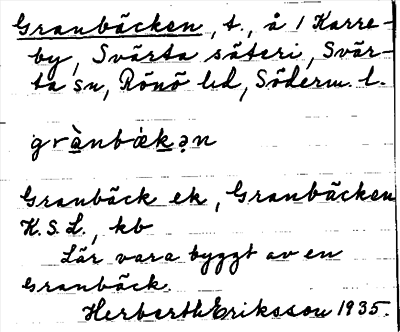 Granbäcken, t., å 1 Karre-
by, Svärta säteri, Svär-
ta sn, Rönö hd, Söderm. l.
grànbäkən
Granbäck ek, Granbäcken
K.S.L., kb
Lär vara byggt av en
Granbäck.
Herberth Eriksson 1935.